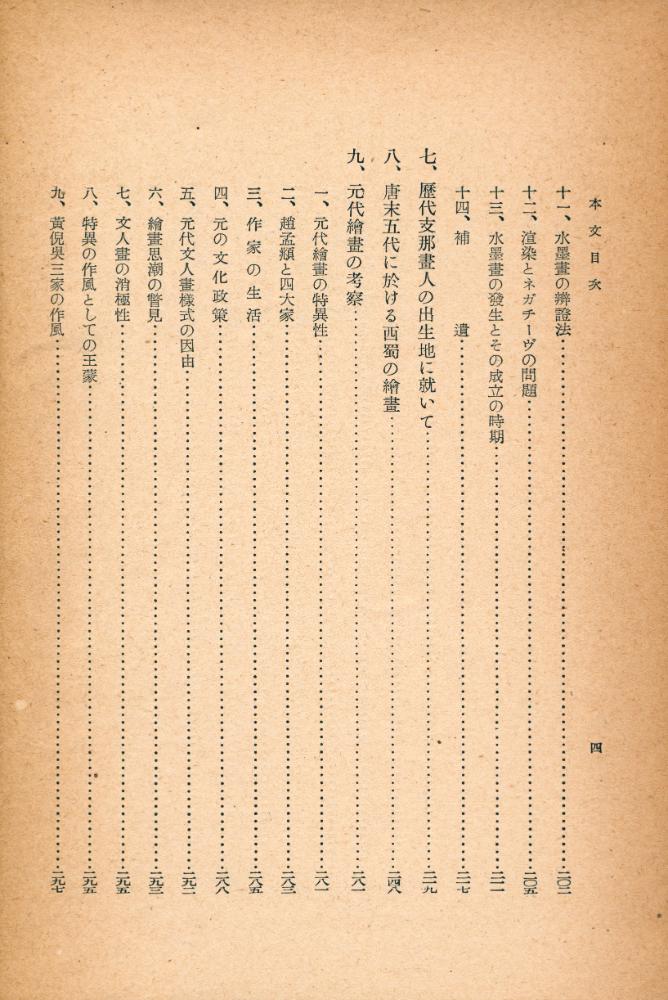 本文目次
十一、水墨畫の辨證法……二〇二
十二、渲染とネガチーヴの問題……二〇五
十三、水墨畫の發生とその成立の時期……二一一
十四、補遺……二一七
七、歷代支那畫人の出生地に就いて……二一九
八、唐末五代に於ける西蜀の繪畫……二四八
九、元代繪畫の考察……二八一
一、元代繪畫の特異性……二八一
二、趙孟頫と四大家……二八三
三、作家の生活……二八五
四、元の文化政策……二八八
五、元代文人畫樣式の因由……二九二
六、繪畫思潮の瞥見……二九三
七、文人畫の消極性……二九五
八、特異の作風としての王蒙……二九五
九、黃倪吳三家の作風……二九七
四